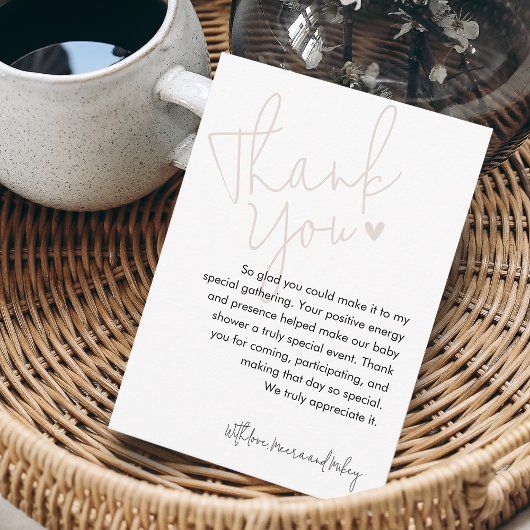 Thank
You
So glad you could make it to my
special gathering. Your positive energy
and presence helped make our baby
shower a truly special event. Thank
you for coming, participating, and
making that day so special.
We truly appreciate it.
With love, Meera and Mikey